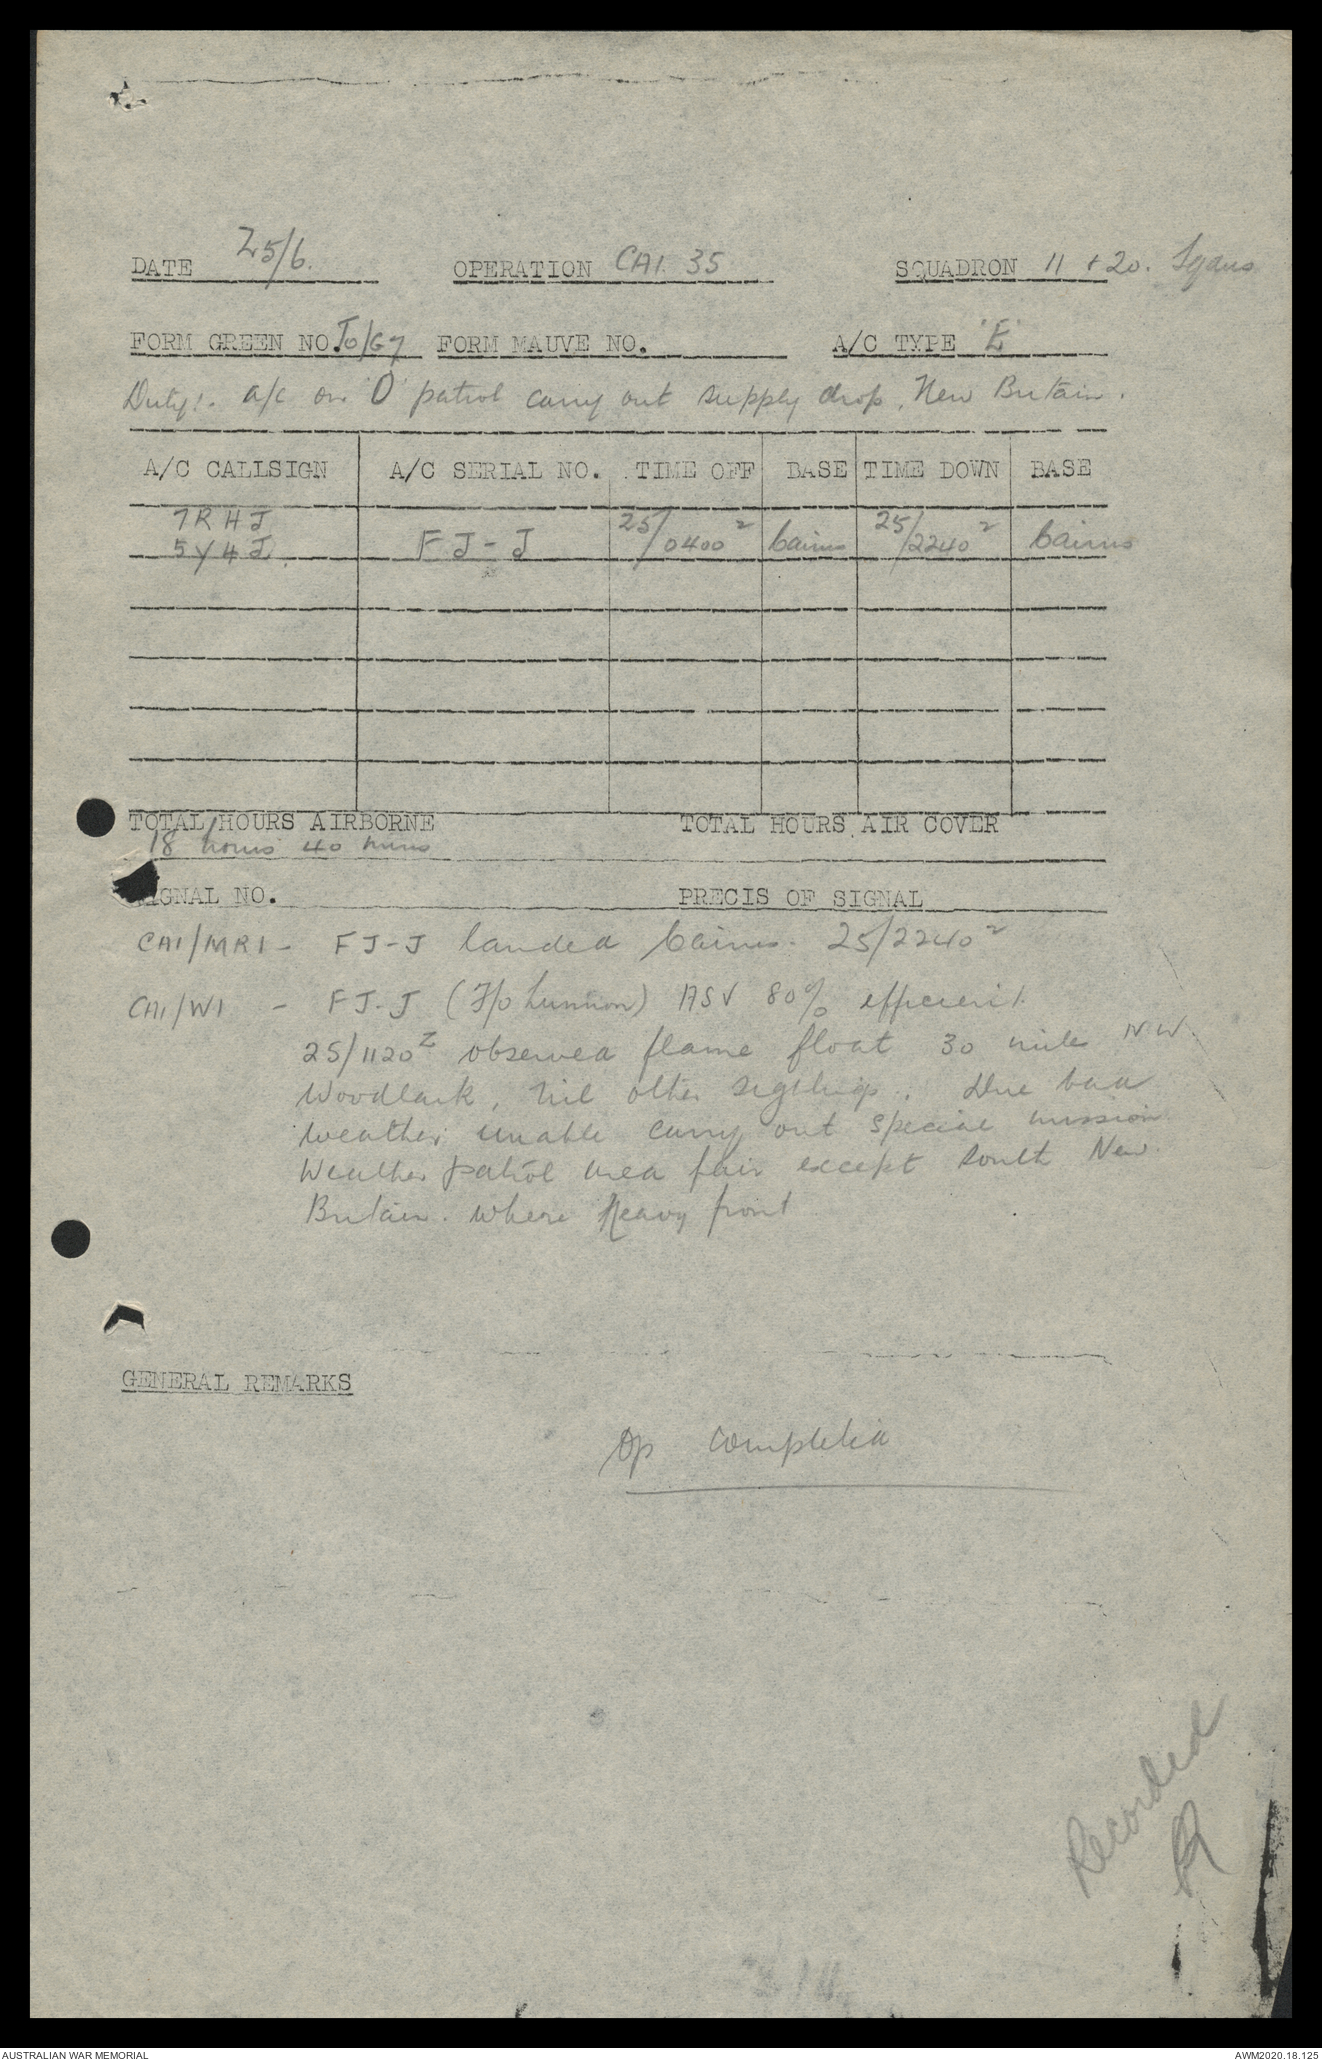 DATE 25/6. OPERATION CAI. 35 SQUADRON 11 + 20. Sqdns
FORM GREEN NO. TO/G7 FORM MAUVE NO. A/C TYPE 'E'
Duty:- a/c on 'D' patrol carry out supply drop, New Britain.
A/C CALLSIGN A/C SERIAL NO. TIME OFF BASE TIME DOWN BASE
7RHJ
5Y4J FJ-J 25/0400Z Cairns 25/2240Z Cairns
TOTAL HOURS AIRBORNE TOTAL HOURS AIR COVER
18 hours 40 mins
SIGNAL NO. PRECIS OF SIGNAL
CAI/MR1 - FJ-J landed Cairns. 25/2240Z
CAI/W1 - FJ-J (F/O) ASV 80% efficient.
25/1120Z observed flame float 30 miles NW.
Woodlark, nil other sightings. Due bad
weather unable carry out special mission
Weather patrol area fair except south New
Britain. where heavy front
GENERAL REMARKS
Op completed
Recorded
AUSTRALIAN WAR MEMORIAL AWM2020.18.125